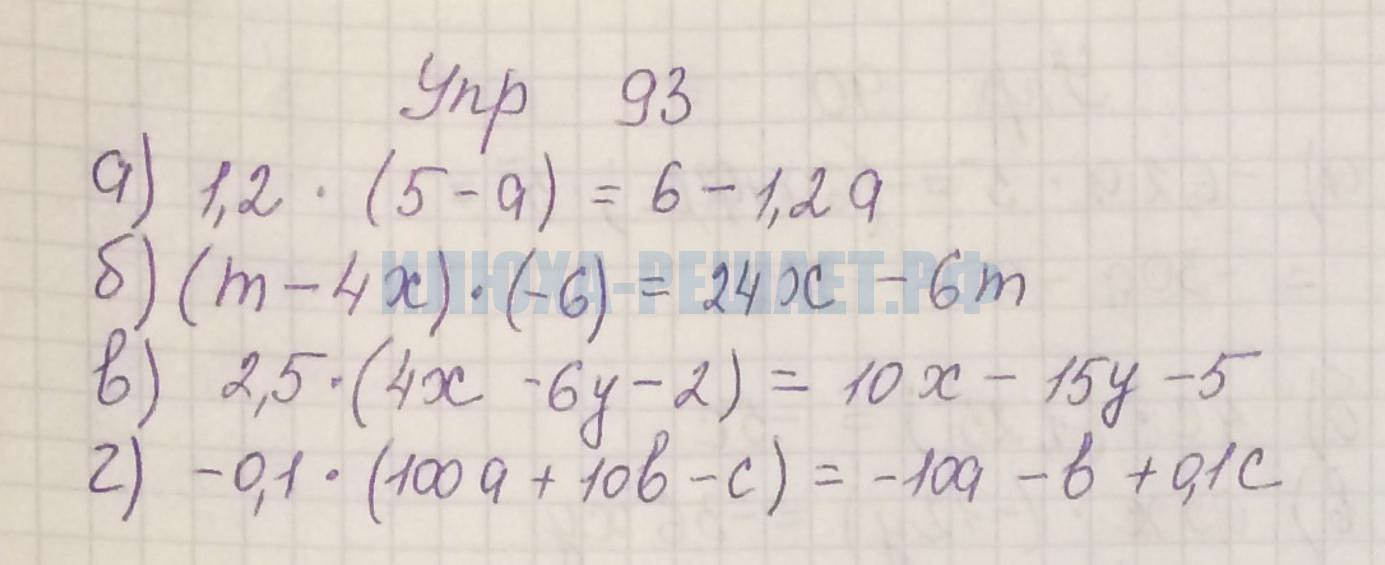 Упр 93
а) 1,2 · (5 - a) = 6 - 1,2 a
б) (m - 4x) · (-6) = 24x - 6m
ИЛЮХА-РЕШАЕТ.РФ
в) 2,5 · (4x - 6y - 2) = 10x - 15y - 5
г) -0,1 · (100a + 10b - c) = -10a - b + 0,1c